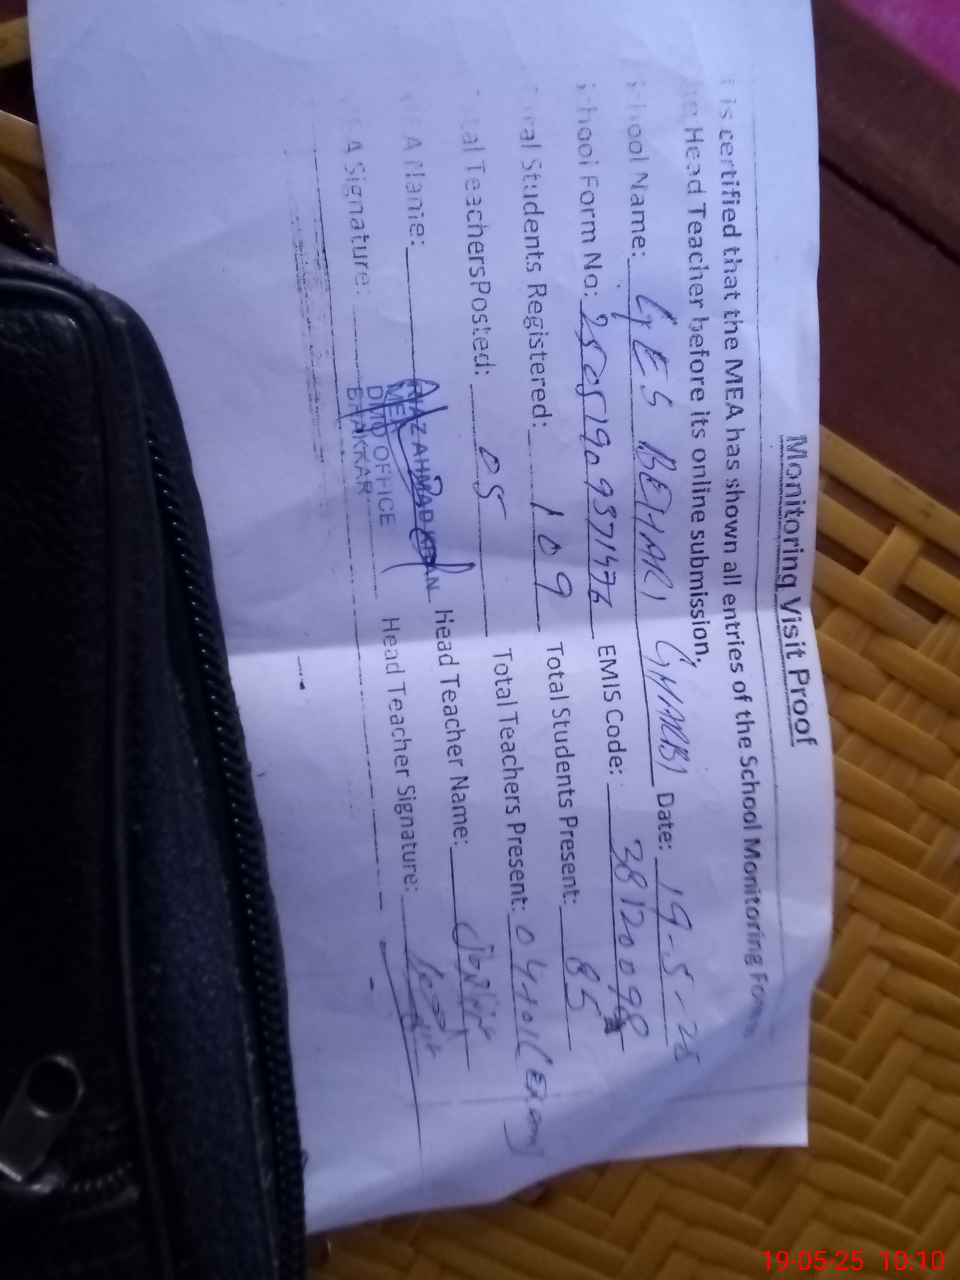 Monitoring Visit Proof
is certified that the MEA has shown all entries of the School Monitoring Form
Head Teacher before its online submission.
School Name: GES BEHARI GHARBI Date: 19-5-25
School Form No: EMIS Code: 38120098
Students Registered: 109 Total Students Present: 85
Total TeachersPosted: 05 Total Teachers Present: 04+01(Exam)
A Name: AHMAD Head Teacher Name:
MEA
A Signature: OFFICE Head Teacher Signature:
BHAKKAR
19-05-25 10:10